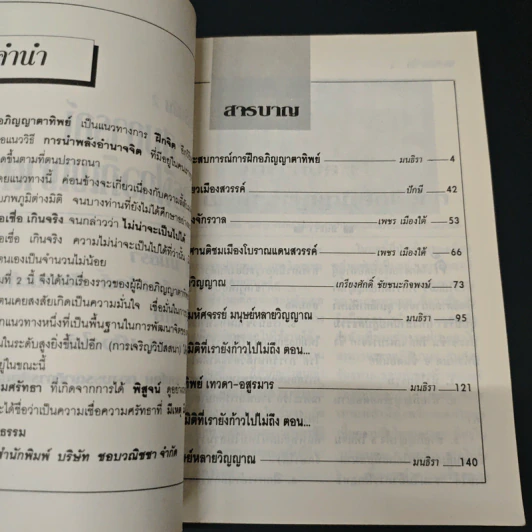 คำนำ
อภิญญาตาทิพย์ เป็นแนวทางการ ฝึกจิต
แนววิธี การนำพลังอำนาจจิต ที่มีอยู่ใน
ขึ้นตามที่ตนปรารถนา
แนวทางนี้ ค่อนข้างจะเกี่ยวเนื่องกับความลี้ลับ
ภพภูมิต่างมิติ จนบางท่านที่ยังไม่ได้ศึกษา
เชื่อ เกินจริง จนกล่าวว่า ไม่น่าจะเป็นไปได้
เชื่อ เกินจริง ความไม่น่าจะเป็นไปได้ที่ว่านั้น
ตนเองเป็นจำนวนไม่น้อย
ที่ 2 นี้ จึงได้นำเรื่องราวของผู้ฝึกอภิญญาตาทิพย์
ตนเคยสงสัยเกิดเป็นความมั่นใจ เชื่อมั่นใน
แนวทางหนึ่งที่เป็นพื้นฐานในการพัฒนาจิต
ในระดับสูงยิ่งขึ้นไปอีก (การเจริญวิปัสสนา)
อยู่ในขณะนี้
มศรัทธา ที่เกิดจากการได้ พิสูจน์
ได้ชื่อว่าเป็นความเชื่อความศรัทธาที่ มีเหตุ
ธรรม
สำนักพิมพ์ บริษัท ชอบวณิชชา จำกัด
สารบาญ
ะสบการณ์การฝึกอภิญญาตาทิพย์ มนธิรา 4
ยวเมืองสวรรค์ ปักษี 42
งจักรวาล เพชร เมืองใต้ 53
ตานติชมเมืองโบราณแดนสวรรค์ เพชร เมืองใต้ 66
วิญญาณ เกรียงศักดิ์ ชัยชนะกิจพงษ์ 73
มหัศจรรย์ มนุษย์หลายวิญญาณ มนธิรา 95
มิติที่เรายังก้าวไปไม่ถึง ตอน...
ทิพย์ เทวดา-อสูรมาร มนธิรา 121
มิติที่เรายังก้าวไปไม่ถึง ตอน...
ษย์หลายวิญญาณ มนธิรา 140